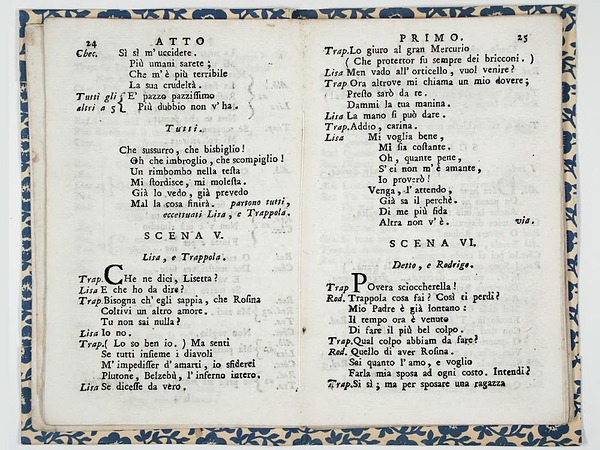 24 ATTO
Chec. Sì sì m' uccidete.
Più umani sarete;
Che m'è più terribile
La sua crudeltà.
Tutti gli E' pazzo pazzissimo
altri a 5 Più dubbio non v'ha.
Tutti.
Che sussurro, che bisbiglio!
Oh che imbroglio, che scompiglio!
Un rimbombo nella testa
Mi stordisce, mi molesta.
Già lo vedo, già prevedo
Mal la cosa finirà. partono tutti,
eccettuati Lisa, e Trappola.
SCENA V.
Lisa, e Trappola.
Trap. CHe ne dici, Lisetta?
Lisa E che ho da dire?
Trap. Bisogna ch' egli sappia, che Rosina
Coltivi un altro amore.
Tu non sai nulla?
Lisa Io no.
Trap. ( Lo so ben io. ) Ma senti
Se tutti insieme i diavoli
M' impedisser d'amarti, io sfiderei
Plutone, Belzebù, l'inferno intero.
Lisa Se dicesse da vero.
PRIMO. 25
Trap. Lo giuro al gran Mercurio
( Che protettor fu sempre dei bricconi. )
Lisa Men vado all'orticello, vuol venire?
Trap Ora altrove mi chiama un mio dovere;
Presto sarò da te.
Dammi la tua manina.
Lisa La mano si può dare.
Trap. Addio, carina.
Lisa Mi voglia bene,
Mi sia costante.
Oh, quante pene,
S'ei non m'è amante,
Io proverò!
Venga, l'attendo,
Già sa il perchè.
Di me più fida
Altra non v'è. via.
SCENA VI.
Detto, e Rodrigo.
Trap POvera scioccherella!
Rod. Trappola cosa fai? Così ti perdi?
Mio Padre è già lontano:
Il tempo ora è venuto
Di fare il più bel colpo.
Trap. Qual colpo abbiam da fare?
Rod. Quello di aver Rosina.
Sai quanto l'amo, e voglio
Farla mia sposa ad ogni costo. Intendi?
Trap. Sì sì; ma per sposare una ragazza